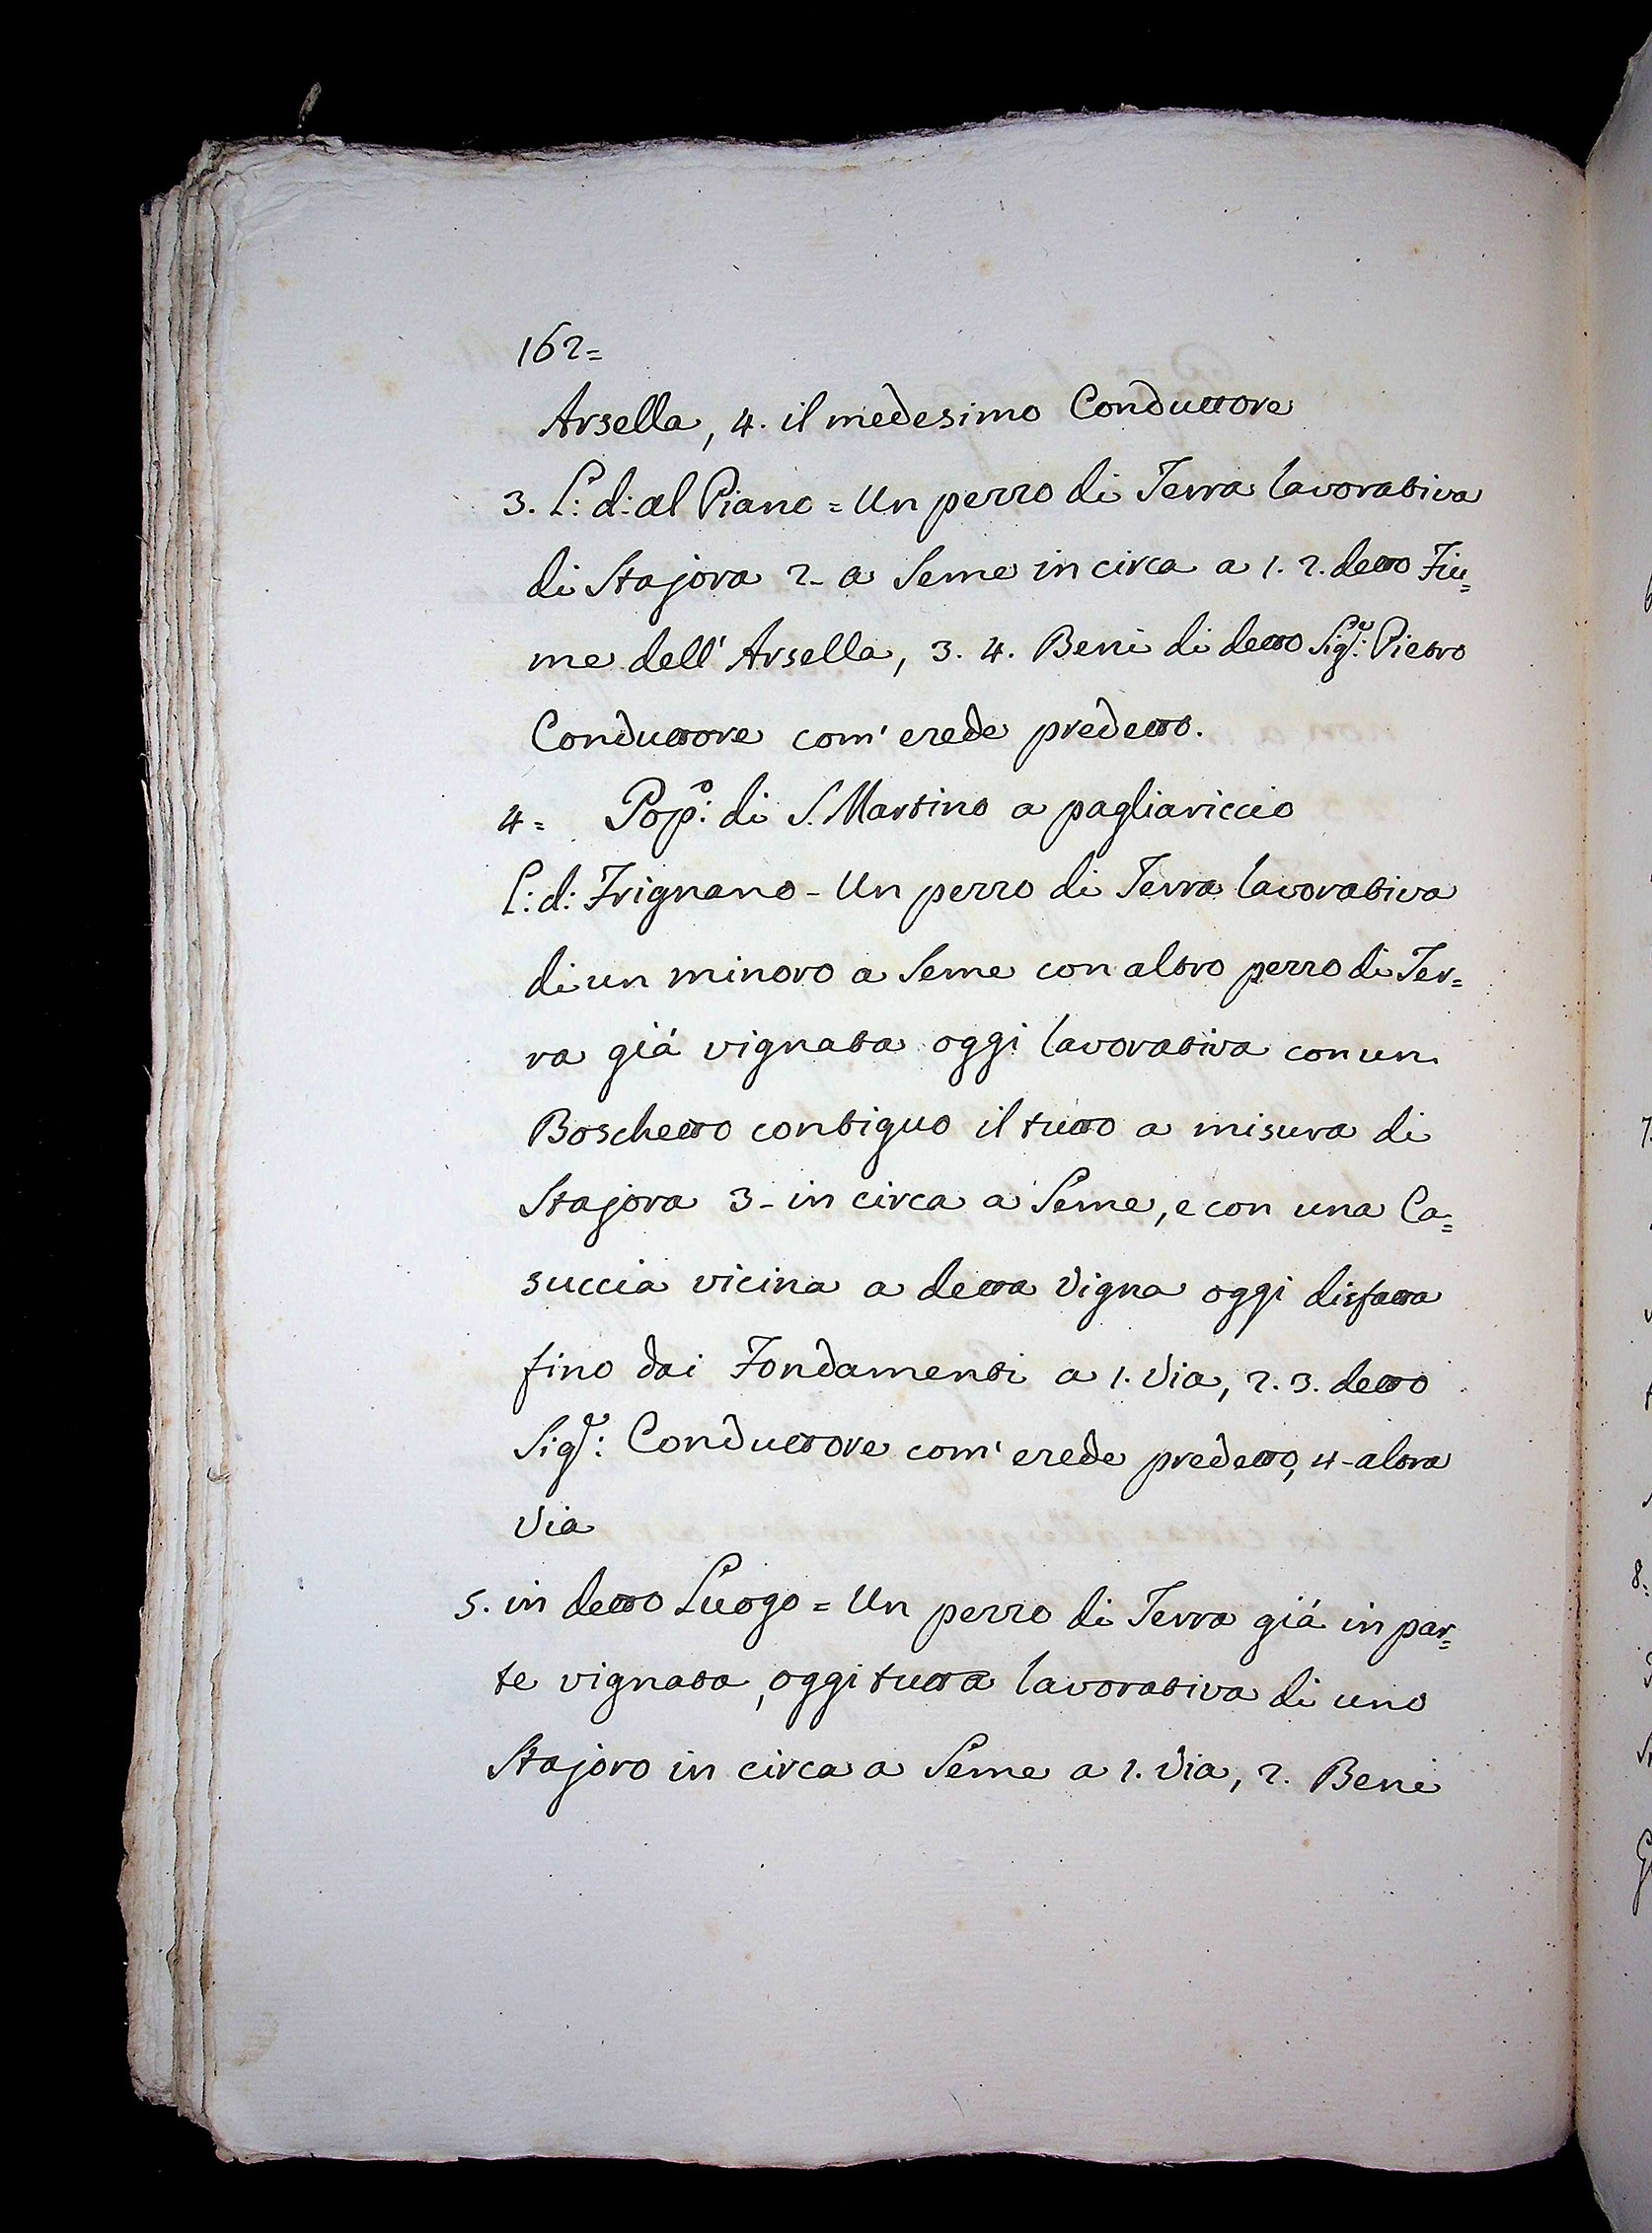 162=
Arsella, 4. il medesimo Conduttore
3. L: d: al Piano = Un pezzo di Terra lavorativa
di Stajora 2- a Seme in circa a 1. 2. detto Fiu=
me dell' Arsella, 3. 4. Beni di detto Sig:e Pietro
Conduttore com' erede predetto.
4= Pop:o di S. Martino a pagliariccio
L: d: Frignano - Un pezzo di Terra lavorativa
di un minoro a Seme con altro pezzo di Ter=
ra giá vignata oggi lavorativa con un
Boschetto contiguo il tutto a misura di
Stajora 3- in circa a Seme, e con una Ca=
succia vicina a detta Vigna oggi disfatta
fino dai Fondamenti a 1. Via, 2. 3. detto
Sig:e Conduttore com' erede predetto, 4- altra
Via
5. in detto Luogo = Un pezzo di Terra giá in par=
te vignata, oggi tutta lavorativa di uno
Stajoro in circa a Seme a 1. Via, 2. Beni